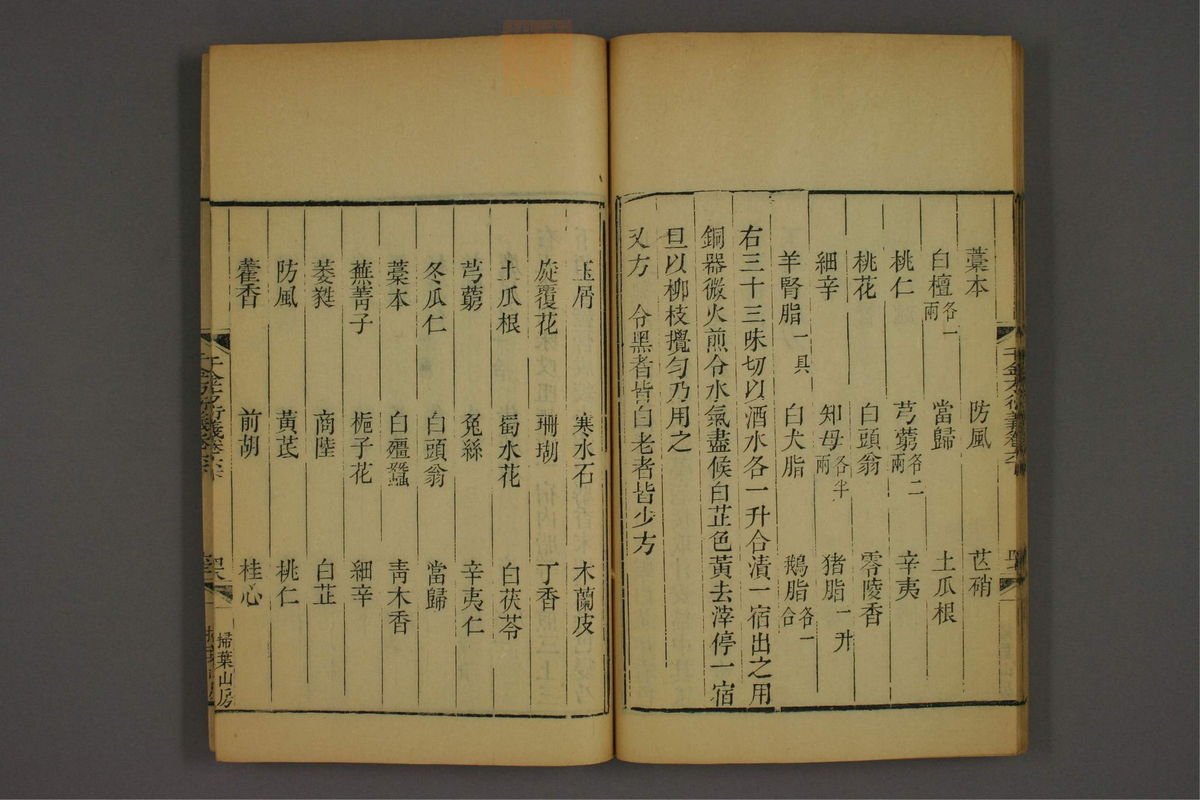 藁本 防風 芒硝
白檀各一兩 當歸 土瓜根
桃仁 芎藭各二兩 辛夷
桃花 白頭翁 零陵香
細辛 知母各半兩 猪脂一升
羊腎脂一具 白犬脂 鵝脂各一合
右三十三味切以酒水各一升合漬一宿出之用
銅器微火煎令水氣盡候白芷色黃去滓停一宿
旦以柳枝攪勻乃用之
又方 令黑者皆白老者皆少方
玉屑 寒水石 木蘭皮
旋覆花 珊瑚 丁香
土瓜根 蜀水花 白茯苓
芎藭 菟絲 辛夷仁
冬瓜仁 白頭翁 當歸
藁本 白殭蠶 青木香
蕪菁子 梔子花 細辛
萎蕤 商陸 白芷
防風 黃芪 桃仁
藿香 前胡 桂心
千金方衍義卷六
掃葉山房